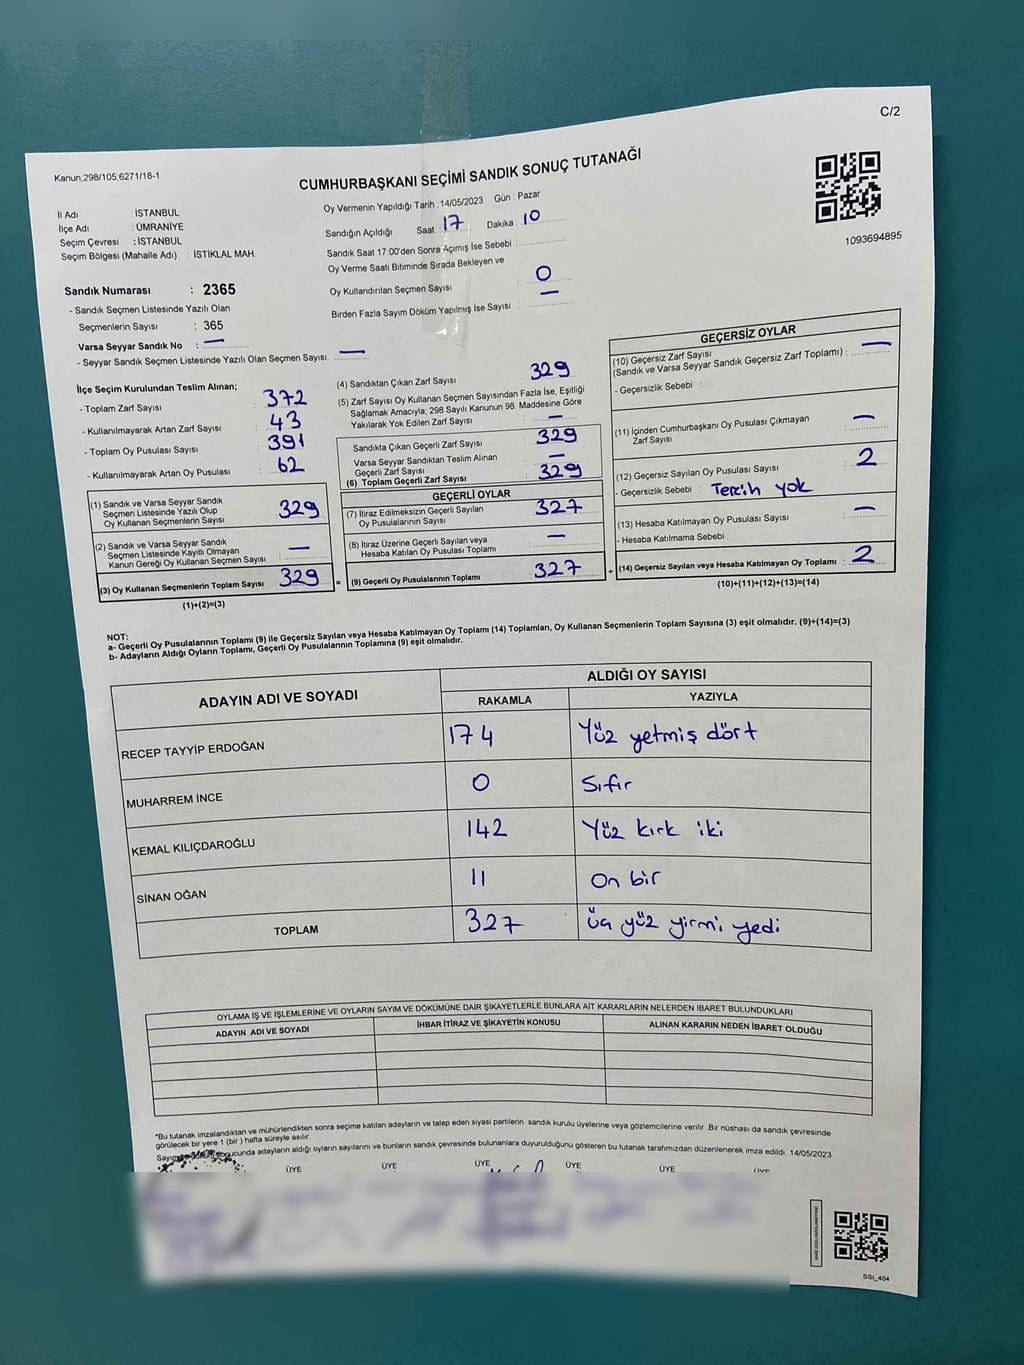 C/2
Kanun;298/105,6271/18-1
CUMHURBAŞKANI SEÇİMİ SANDIK SONUÇ TUTANAĞI
1093694895
İl Adı : İSTANBUL
İlçe Adı : ÜMRANİYE
Seçim Çevresi : İSTANBUL
Seçim Bölgesi (Mahalle Adı) : İSTİKLAL MAH.
Sandık Numarası : 2365
- Sandık Seçmen Listesinde Yazılı Olan
Seçmenlerin Sayısı : 365
Varsa Seyyar Sandık No : —
- Seyyar Sandık Seçmen Listesinde Yazılı Olan Seçmen Sayısı: —
Oy Vermenin Yapıldığı Tarih : 14/05/2023 Gün : Pazar
Sandığın Açıldığı Saat : 17 Dakika : 10
Sandık Saat 17:00'den Sonra Açımış İse Sebebi :
Oy Verme Saati Bitiminde Sırada Bekleyen ve
Oy Kullandırılan Seçmen Sayısı : 0
Birden Fazla Sayım Döküm Yapılmış İse Sayısı : —
İlçe Seçim Kurulundan Teslim Alınan;
- Toplam Zarf Sayısı : 372
- Kullanılmayarak Artan Zarf Sayısı : 43
- Toplam Oy Pusulası Sayısı : 391
- Kullanılmayarak Artan Oy Pusulası : 62
(1) Sandık ve Varsa Seyyar Sandık
Seçmen Listesinde Yazılı Olup
Oy Kullanan Seçmenlerin Sayısı : 329
(2) Sandık ve Varsa Seyyar Sandık
Seçmen Listesinde Kayıtlı Olmayan
Kanun Gereği Oy Kullanan Seçmen Sayısı : —
(3) Oy Kullanan Seçmenlerin Toplam Sayısı : 329
(1)+(2)=(3)
=
(4) Sandıktan Çıkan Zarf Sayısı : 329
(5) Zarf Sayısı Oy Kullanan Seçmen Sayısından Fazla İse, Eşitliği
Sağlamak Amacıyla; 298 Sayılı Kanunun 98. Maddesine Göre
Yakılarak Yok Edilen Zarf Sayısı : —
Sandıkta Çıkan Geçerli Zarf Sayısı : 329
Varsa Seyyar Sandıktan Teslim Alınan
Geçerli Zarf Sayısı : —
(6) Toplam Geçerli Zarf Sayısı : 329
GEÇERLİ OYLAR
(7) İtiraz Edilmeksizin Geçerli Sayılan
Oy Pusulalarının Sayısı : 327
(8) İtiraz Üzerine Geçerli Sayılan veya
Hesaba Katılan Oy Pusulası Toplamı : —
(9) Geçerli Oy Pusulalarının Toplamı : 327
+
GEÇERSİZ OYLAR
(10) Geçersiz Zarf Sayısı
(Sandık ve Varsa Seyyar Sandık Geçersiz Zarf Toplamı) : —
- Geçersizlik Sebebi :
(11) İçinden Cumhurbaşkanı Oy Pusulası Çıkmayan
Zarf Sayısı : —
(12) Geçersiz Sayılan Oy Pusulası Sayısı : 2
- Geçersizlik Sebebi : Tercih yok
(13) Hesaba Katılmayan Oy Pusulası Sayısı : —
- Hesaba Katılmama Sebebi :
(14) Geçersiz Sayılan veya Hesaba Katılmayan Oy Toplamı : 2
(10)+(11)+(12)+(13)=(14)
NOT:
a- Geçerli Oy Pusulalarının Toplamı (9) ile Geçersiz Sayılan veya Hesaba Katılmayan Oy Toplamı (14) Toplamları, Oy Kullanan Seçmenlerin Toplam Sayısına (3) eşit olmalıdır. (9)+(14)=(3)
b- Adayların Aldığı Oyların Toplamı, Geçerli Oy Pusulalarının Toplamına (9) eşit olmalıdır.
ADAYIN ADI VE SOYADI ALDIĞI OY SAYISI
RAKAMLA YAZIYLA
RECEP TAYYİP ERDOĞAN 174 Yüz yetmiş dört
MUHARREM İNCE 0 Sıfır
KEMAL KILIÇDAROĞLU 142 Yüz kırk iki
SİNAN OĞAN 11 On bir
TOPLAM 327 üç yüz yirmi yedi
OYLAMA İŞ VE İŞLEMLERİNE VE OYLARIN SAYIM VE DÖKÜMÜNE DAİR ŞİKAYETLERLE BUNLARA AİT KARARLARIN NELERDEN İBARET BULUNDUKLARI
ADAYIN ADI VE SOYADI İHBAR İTİRAZ VE ŞİKAYETİN KONUSU ALINAN KARARIN NEDEN İBARET OLDUĞU
*Bu tutanak imzalandıktan ve mühürlendikten sonra seçime katılan adayların ve talep eden siyasi partilerin sandık kurulu üyelerine veya gözlemcilerine verilir. Bir nüshası da sandık çevresinde
görülecek bir yere 1 (bir) hafta süreyle asılır.
adayların aldığı oyların sayılarını ve bunların sandık çevresinde bulunanlara duyurulduğunu gösteren bu tutanak tarafımızdan düzenlenerek imza edildi. 14/05/2023
ÜYE ÜYE ÜYE ÜYE ÜYE ÜYE
SSI_404